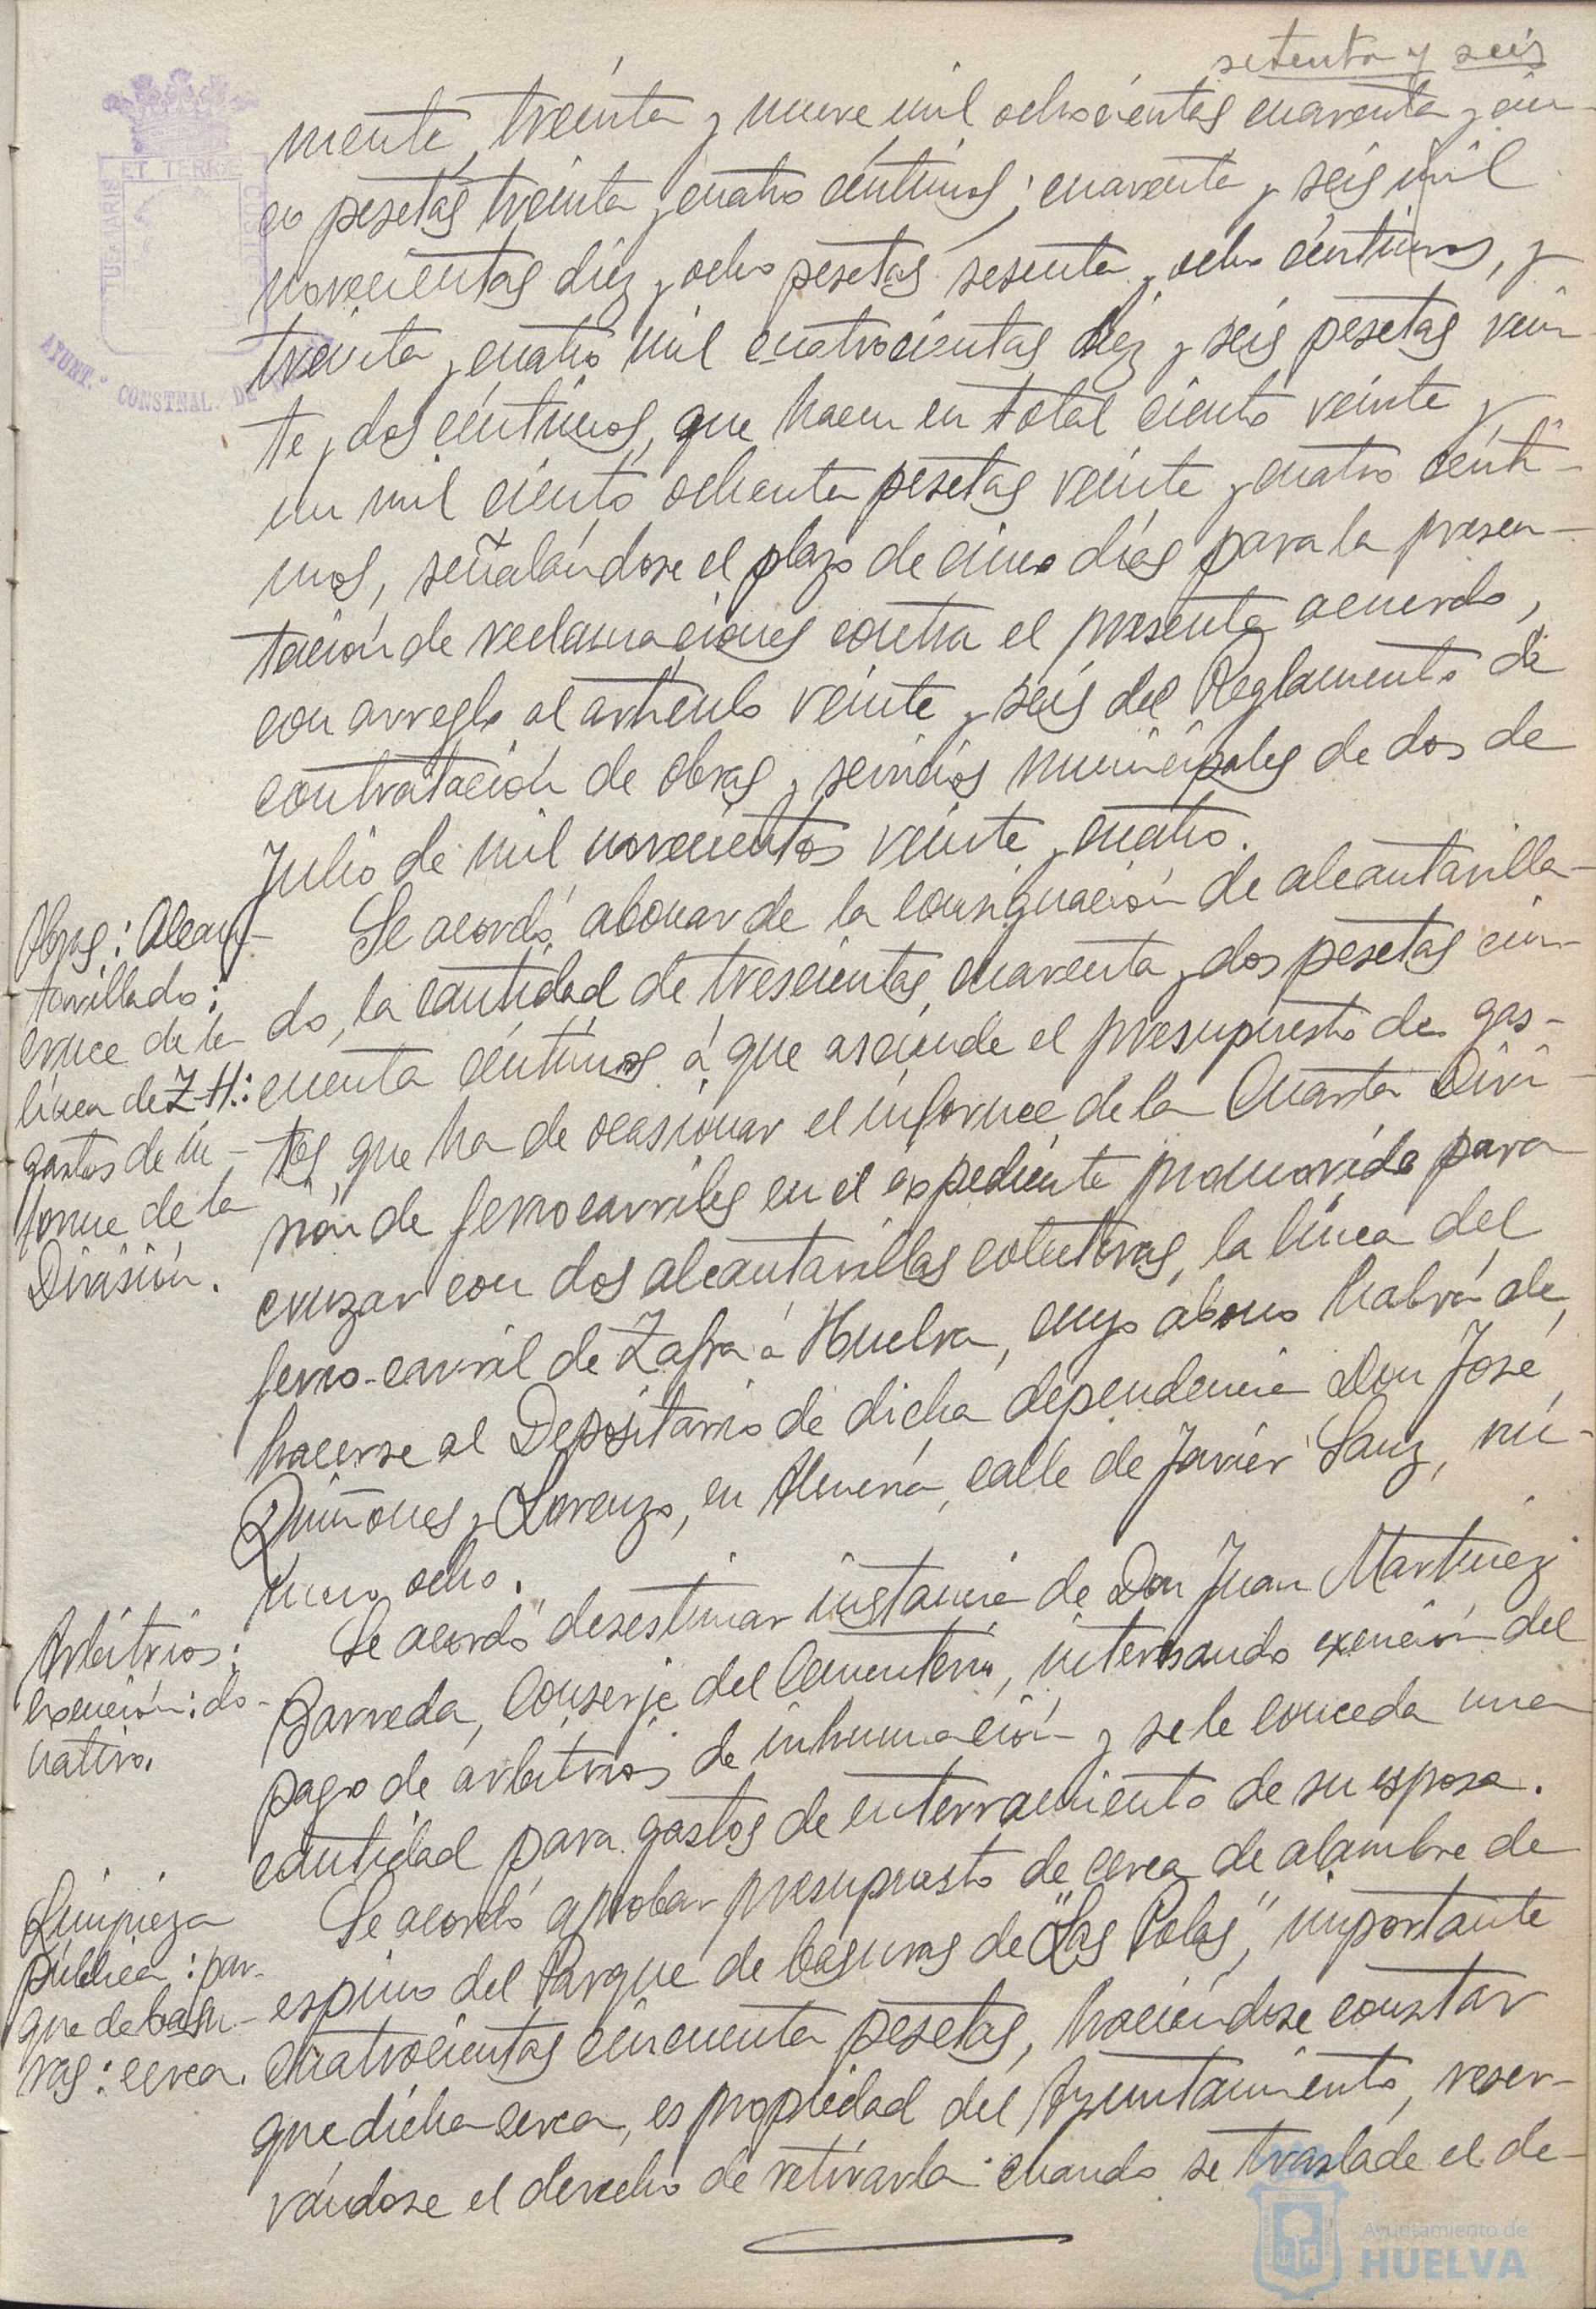 setenta y seis
mente, treinta y nueve mil ochocientas cuarenta y cin-
co pesetas treinta y cuatro céntimos; cuarenta y seis mil
novecientas diez y ocho pesetas sesenta y ocho céntimos, y
treinta y cuatro mil cuatrocientas diez y seis pesetas vein
te y dos céntimos, que hacen en total ciento veinte y
un mil ciento ochenta pesetas veinte y cuatro cénti-
mos, señalándose el plazo de cinco días para la presen-
tación de reclamaciones contra el presente acuerdo,
con arreglo al artículo veinte y seis del Reglamento de
contratación de obras y servicios municipales de dos de
Julio de mil novecientos veinte y cuatro.
Obras: Alcan-
tarillado:
cruce de la
línea de Z-H.:
gastos de in-
forme de la
División.
Se acordó abonar de la consignación de alcantarilla-
do, la cantidad de trescientas cuarenta y dos pesetas cin-
cuenta céntimos á que asciende el presupuesto de gas-
tos, que ha de ocasionar el informe de la Cuarta Divi-
sión de ferrocarriles en el expediente promovido para
cruzar con dos alcantarillas colectivas, la línea del
ferro-carril de Zafra á Huelva, cuyo abono habrá de
hacerse al Depositario de dicha dependencia Don José
Quiñones y Lorenzo, en Almería, calle de Javier Sanz, nú-
mero ocho.
Arbitrios:
exención: do-
nativo.
Se acordó desestimar instancia de Don Juan Martinez
Barreda, Conserje del Cementerio, interesando exención del
pago de arbitrios de inhumación y se le conceda una
cantidad para gastos de enterramiento de su esposa.
Limpieza
pública: par-
que de basu-
ras: cerca.
Se acordó aprobar presupuesto de cerca de alambre de
espino del Parque de basuras de "Las Polas", importante
cuatrocientas cincuenta pesetas, haciéndose constar
que dicha cerca, es propiedad del Ayuntamiento, reser-
vándose el derecho de retirarla cuando se traslade el de-
ET TERRÆ
CUSTODIA
AYUNT.º CONSTNAL. DE
Ayuntamiento de
HUELVA